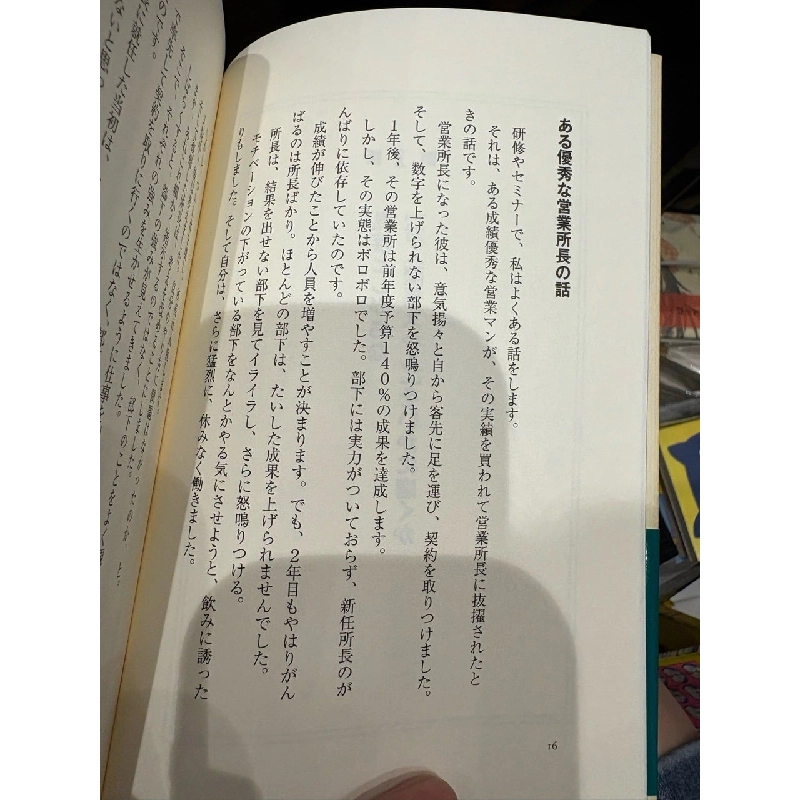 ある優秀な営業所長の話
研修やセミナーで、私はよくある話をします。
それは、ある成績優秀な営業マンが、その実績を買われて営業所長に抜擢されたと
きの話です。
営業所長になった彼は、意気揚々と自から客先に足を運び、契約を取りつけました。
そして、数字を上げられない部下を怒鳴りつけました。
1年後、その営業所は前年度予算140%の成果を達成します。
しかし、その実態はボロボロでした。部下には実力がついておらず、新任所長のが
んばりに依存していたのです。
成績が伸びたことから人員を増やすことが決まります。でも、2年目もやはりがん
ばるのは所長ばかり。ほとんどの部下は、たいした成果を上げられませんでした。
所長は、結果を出せない部下を見てイライラし、さらに怒鳴りつける。
モチベーションの下がっている部下をなんとかやる気にさせようと、飲みに誘った
りもしました。そして自分は、さらに猛烈に、休みなく働きました。
16
に就任した当初は、
ないと思っ